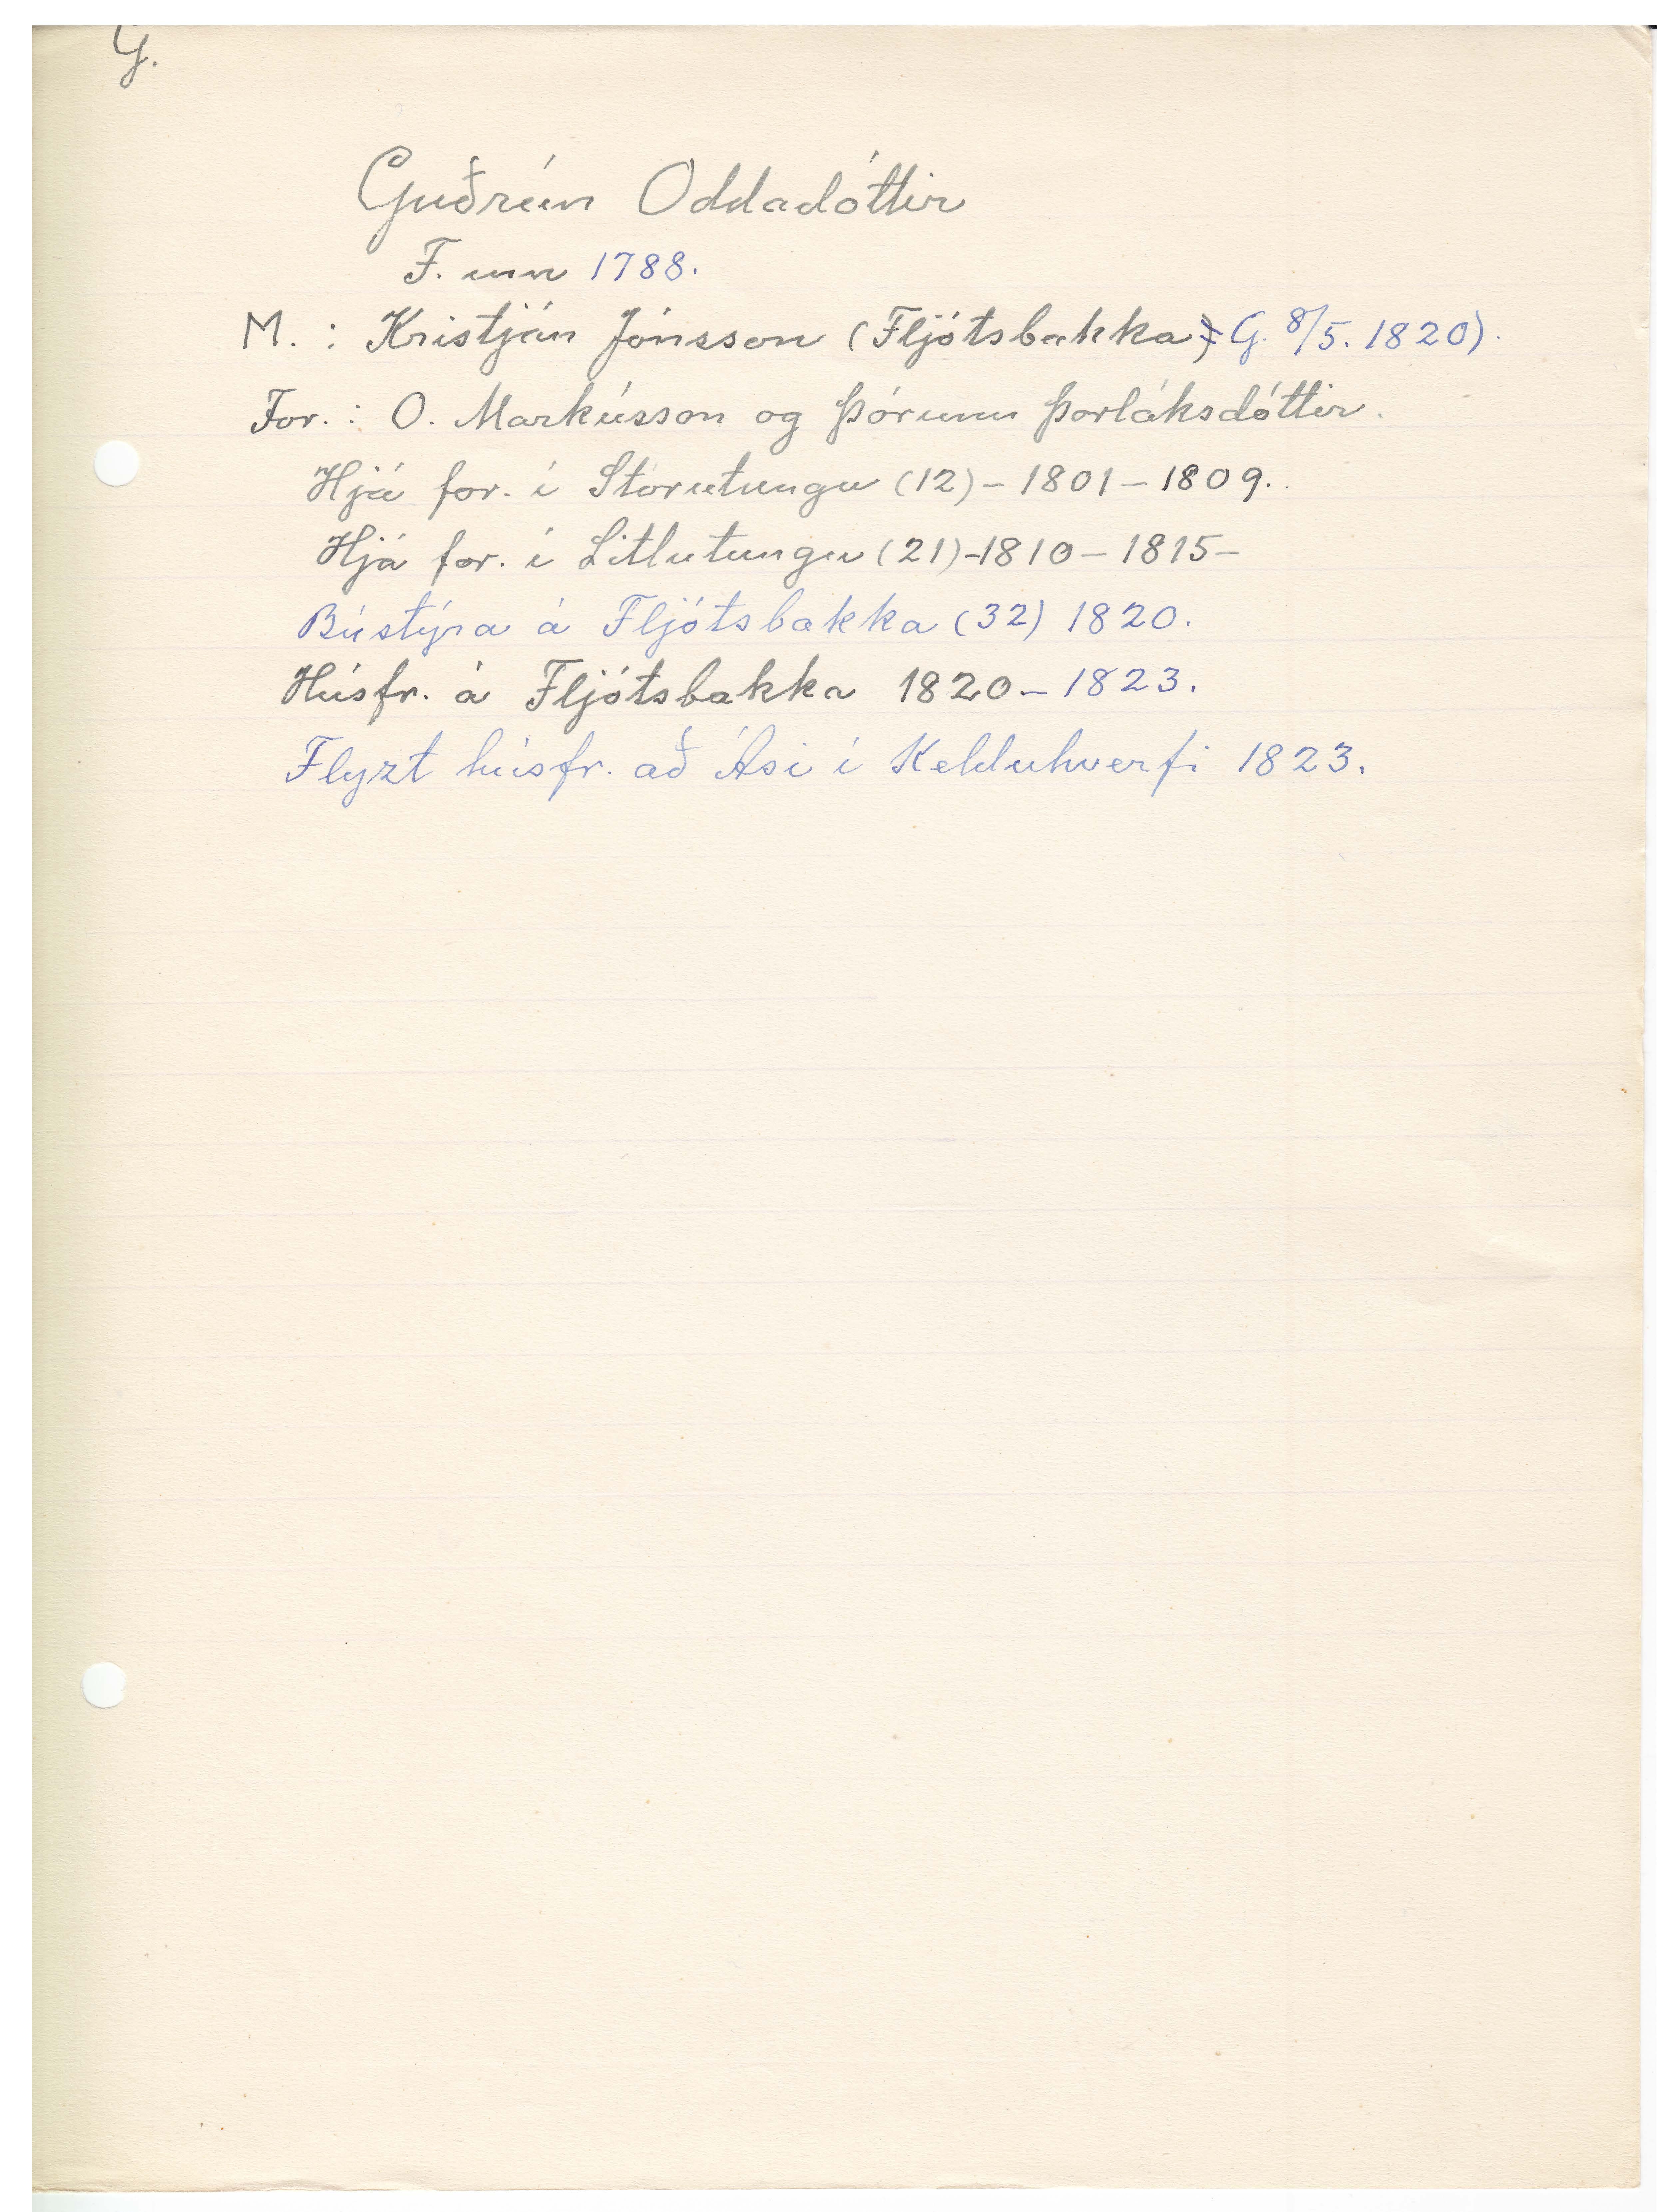 G.
Guðrún Oddadóttir
F. um 1788.
M. : Kristján Jónsson (Fljótsbakka) G. 8/5. 1820).
For. : O. Markússon og Þórunn Þorláksdóttir.
Hjá for. í Stórutungu (12) – 1801 – 1809.
Hjá for. í Litlutungu (21) – 1810 – 1815 –
Bústýra á Fljótsbakka (32) 1820.
Húsfr. á Fljótsbakka 1820 – 1823.
Flyzt húsfr. að Ási í Kelduhverfi 1823.